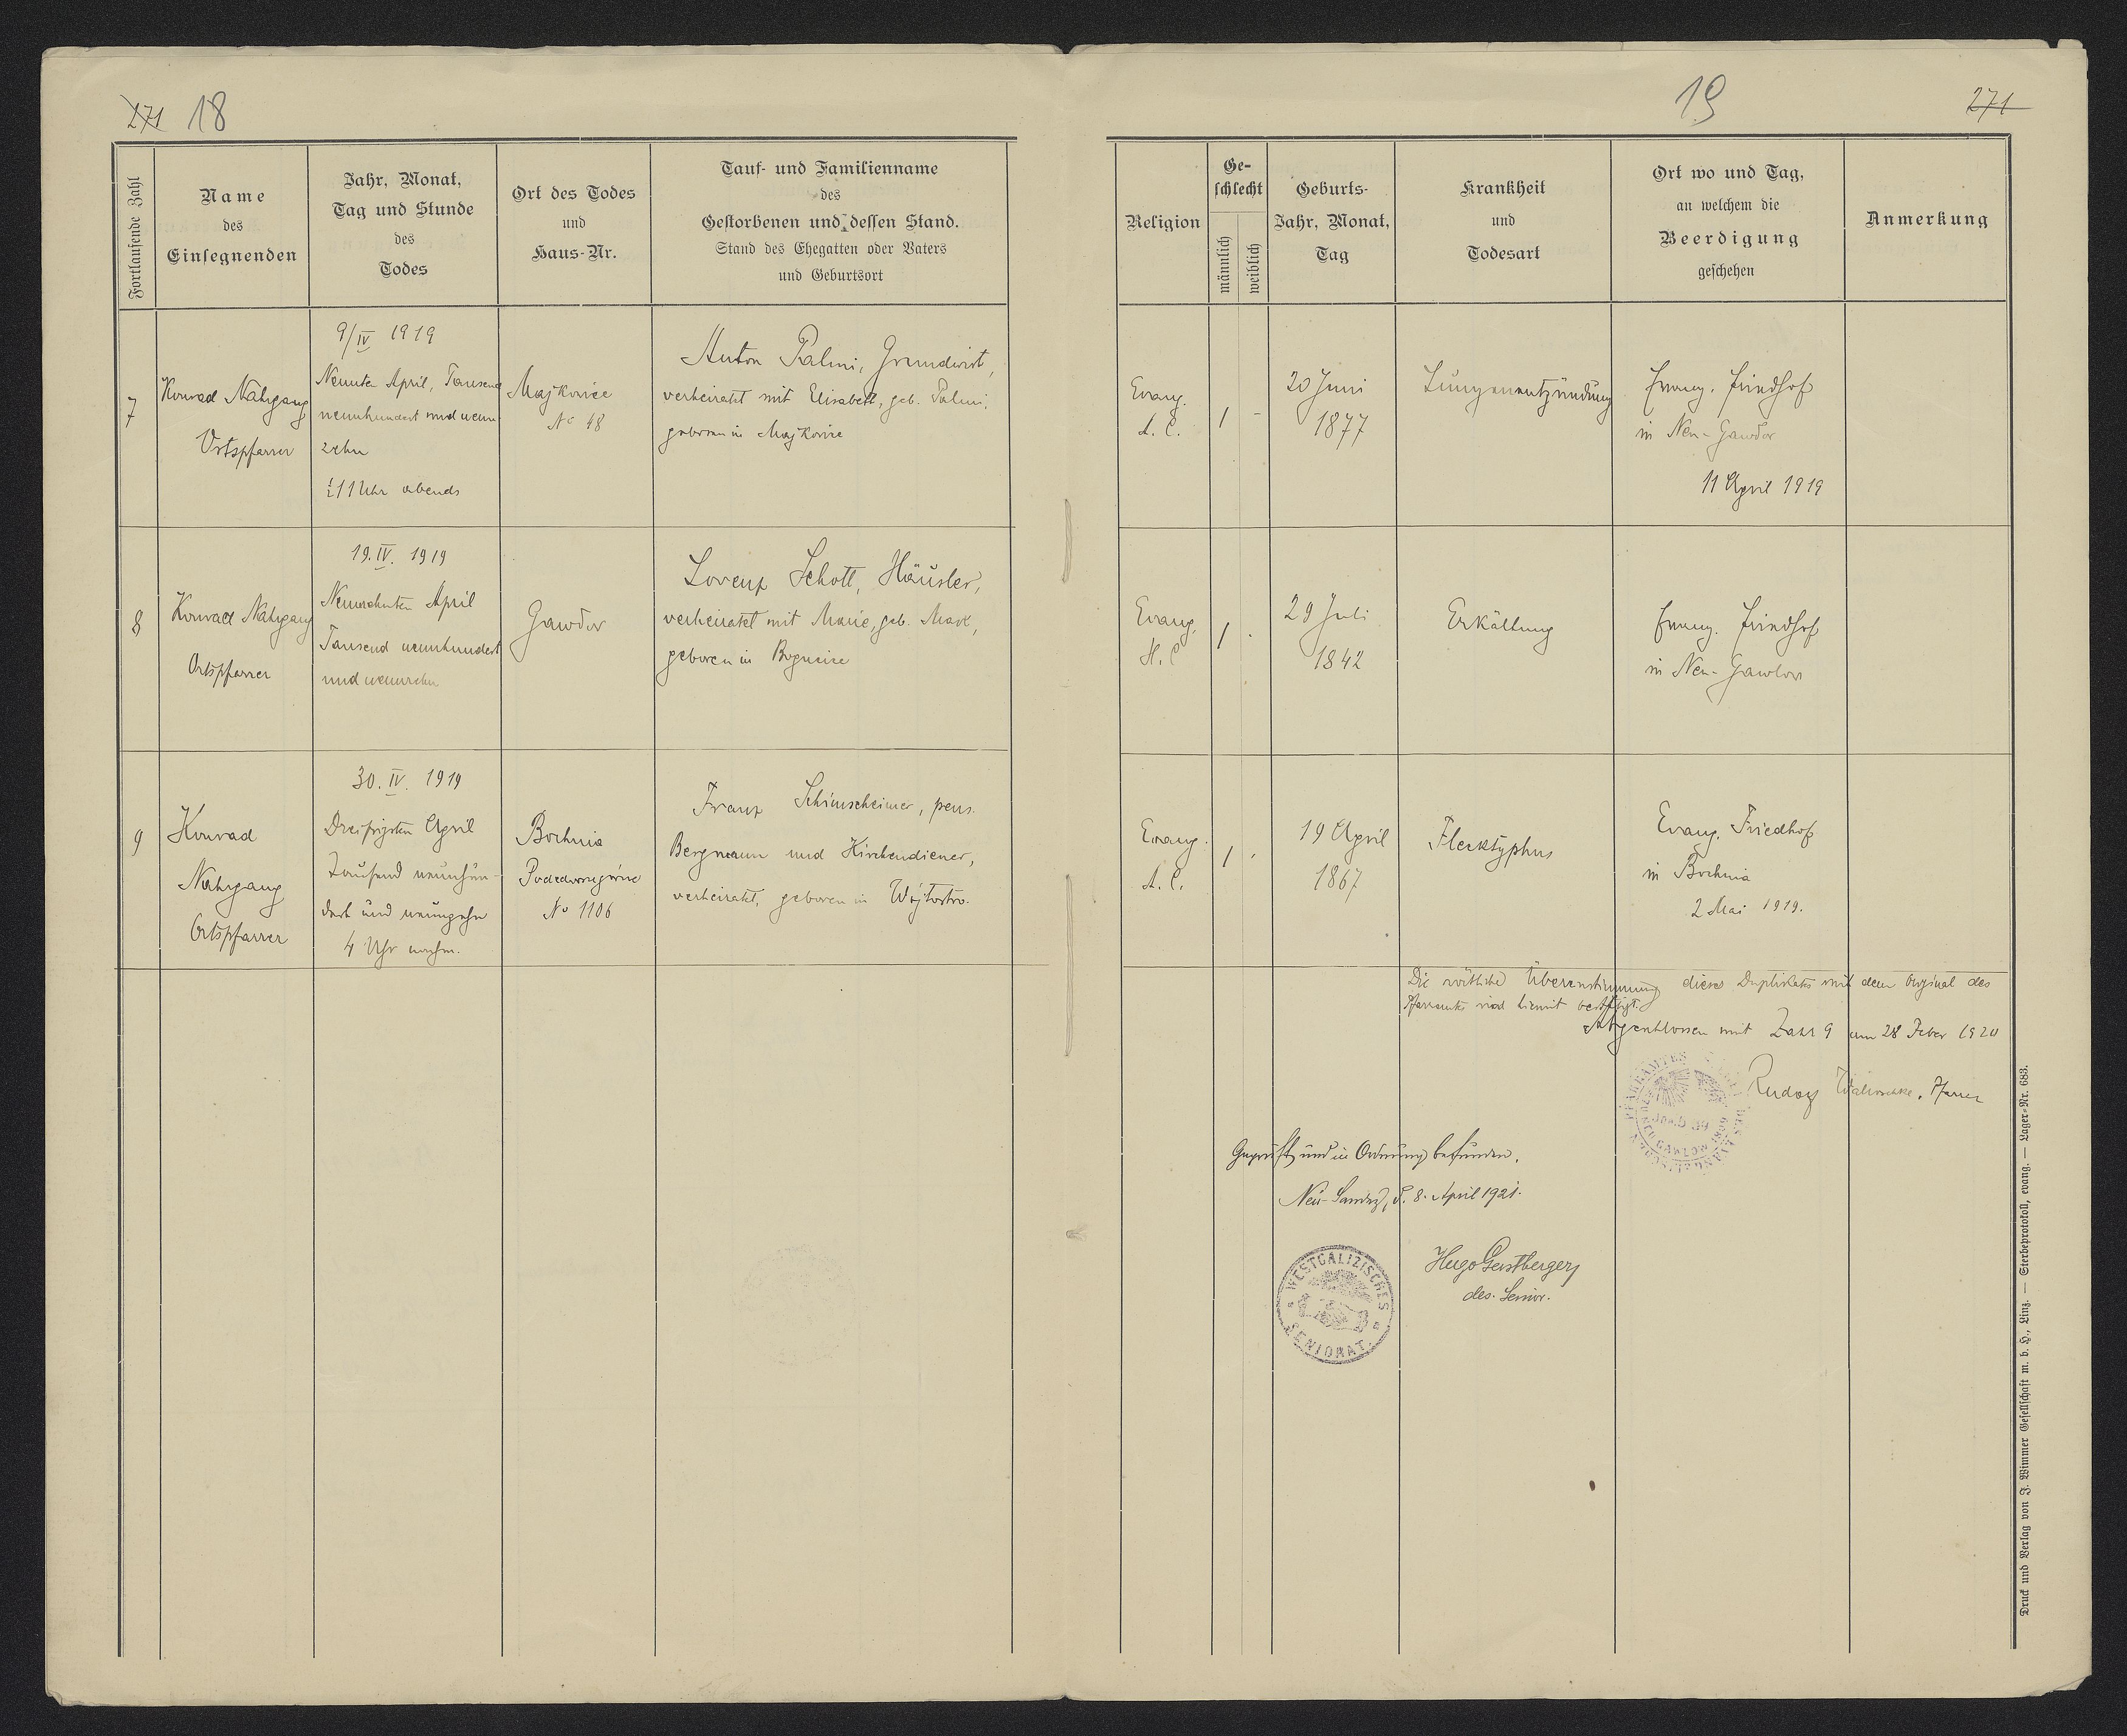 271 18
Fortlaufende Zahl
Name
des
Einsegnenden
Jahr, Monat,
Tag und Stunde
des
Todes
Ort des Todes
und
Haus-Nr.
Tauf- und Familienname
des
Gestorbenen und dessen Stand.
Stand des Ehegatten oder Vaters
und Geburtsort
7
Konrad Nahrgang
Ortspfarrer
9/IV 1919
Neunten April, Tausend
neunhundert und neun
zehn
½11 Uhr abends
Majkovice
No 48
Anton Palmi, Grundwirt,
verheiratet mit Elisabeth, geb. Palmi,
geboren in Majkovice
8
Konrad Nahrgang
Ortspfarrer
19.IV. 1919
Neunzehnten April
Tausend neunhundert
und neunzehn
Gawlov
Lorenz Schott, Häusler,
verheiratet mit Marie, geb. Mark,
geboren in
9
Konrad
Nahrgang
Ortspfarrer
30.IV. 1919
Dreißigsten April
Tausend neunhun-
dert und neunzehn
4 Uhr nachm.
Bochnia
No 1106
Franz Schimscheimer, pens.
Bergmann und Kirchendiener,
verheiratet, geboren in
19 271
Religion
Ge-
schlecht
männlich
weiblich
Geburts-
Jahr, Monat,
Tag
Krankheit
und
Todesart
Ort wo und Tag,
an welchem die
Beerdigung
geschehen
Anmerkung
Evang.
A. C.
1 -
20 Juni
1877
Lungenentzündung
Evang. Friedhof
in Neu-Gawlov
11 April 1919
Evang.
H. C
1 .
29 Juli
1842
Erkältung
Evang. Friedhof
in Neu-Gawlow
Evang.
A. C.
1 .
19 April
1867
Flecktyphus
Evang. Friedhof
in Bochnia
2 Mai 1919.
Die wörtliche Übereinstimmung dieses Duplikats mit dem Original des
Pfarramts wird hiemit bestätigt.
Abgeschlossen mit Zahl 9 am 28 Feber 1920
Rudolf Walloschke, Pfarrer
PFARRAMTES
GAWLOW
Geprüft und in Ordnung befunden.
Neu-Sandez, d. 8. April 1921.
Hugo Gerstberger,
des. Senior.
WESTGALIZISCHES
SENIORAT.
Druck und Verlag von J. Wimmer Gesellschaft m. b. H., Linz. — Sterbeprotokoll, evang. — Lager-Nr. 683.